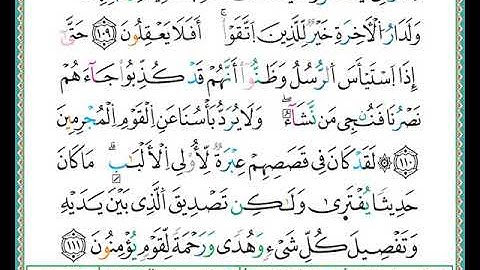 وَلَدَارُ الْأَخِرَةِ خَيْرٌ لِّلَّذِينَ اتَّقَوْا۟ أَفَلَا يَعْقِلُونَ ١٠٩ حَتَّىٰٓ
إِذَا اسْتَيْأَسَ الرُّسُلُ وَظَنُّوٓا۟ أَنَّهُمْ قَدْ كُذِّبُوا۟ جَآءَ هُمْ
نَصْرُنَا فَنُـنْجِي مَن نَّشَآءُ ۖ وَلَا يُرَدُّ بَأْسُنَا عَنِ الْقَوْمِ الْمُجْرِمِينَ
١١٠ لَقَدْ كَانَ فِي قَصَصِهِمْ عِبْرَةٌ لِّأُو۟لِي الْأَلْبَٰبِ ۗ مَا كَانَ
حَدِيثًا يُفْتَرَىٰ وَلَٰكِن تَصْدِيقَ الَّذِي بَيْنَ يَدَيْهِ
وَتَفْصِيلَ كُلِّ شَيْءٍ وَهُدًى وَرَحْمَةً لِّقَوْمٍ يُؤْمِنُونَ ١١١